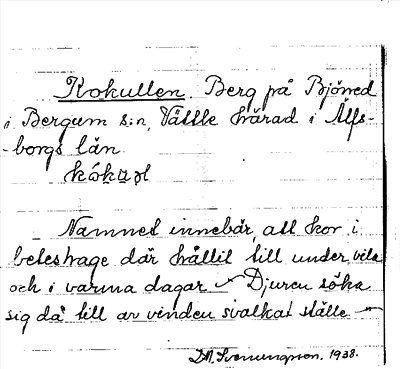 Kokullen. Berg på Björred
i Bergum s:n, Vättle härad i Älfs-
borgs län.
Namnet innebär, att kor i
beteshage där hållit till under vila
och i varma dagar - Djuren söka
sig då till av vinden svalkat ställe -
1938.